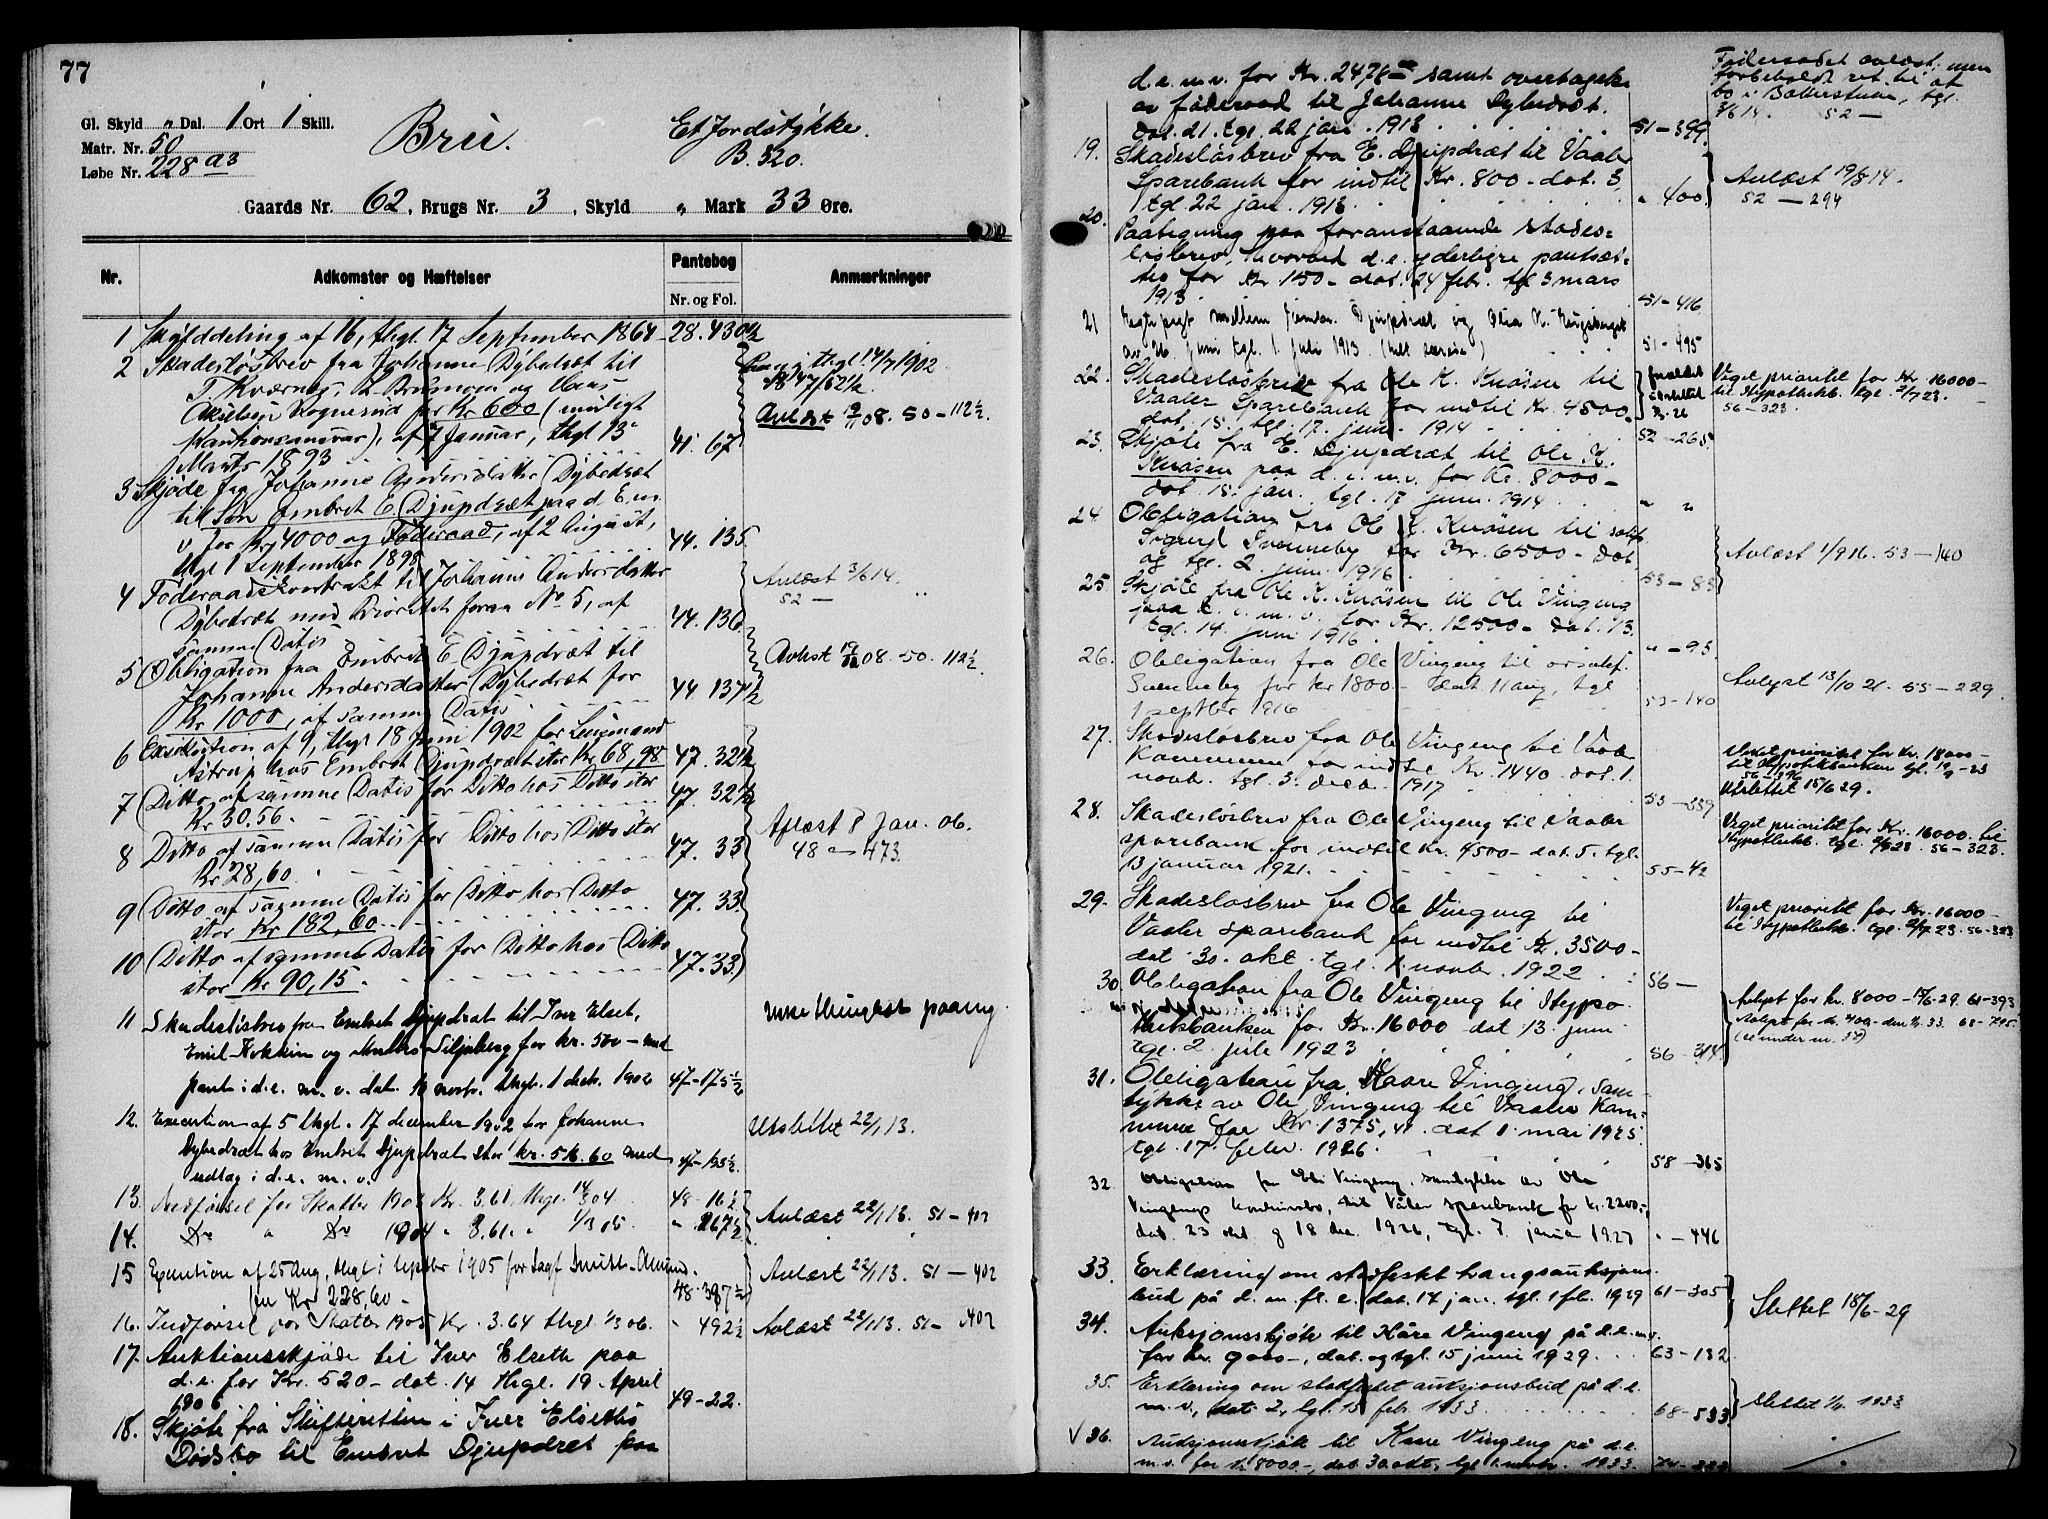 77
Gl. Skyld " Dal. 1 Ort 1 Skill.
Matr. Nr. 50
Løbe Nr. 228 a3
Bru.
Et Jordstykke.
B. 320.
Gaards Nr. 62, Brugs Nr. 3, Skyld " Mark 33 Øre.
Nr. Adkomster og Hæftelser Pantebog Nr. og Fol. Anmærkninger
1 Skylddeling af 16, thgl. 17 September 1864 28. 430½
2 Skadesløsbrev fra Johanne Dybedræt til
og Hans
for Kr 600 (muligt
Kautionsansvar), af 7 Januar, thgl 13
Marts 1893 41. 67.
thgl. 14/7 1902
Avlæst 08. 50 – 112½.
3 Skjøde fra Johanne Andersdatter Dybedræt
til Søn Embret E. Djupdræt paa d. E. m.
v. for Kr. 4000 og Føderaad, af 2 August,
thgl 1 September 1898 44. 135.
4 Føderaadskontrakt til Johanne Andersdatter
Dybedræt med Prioritet foran No 5, af
samme Datis 44. 136.
Avlæst 3/6 14.
52 — "
5 Obligation fra Embret E. Djupdræt til
Johanne Andersdatter Dybedræt for
Kr 1000, af samme Datis 44. 137½
Avlæst 08. 50. 112½.
6 Exekution af 9, thgl 18 Juni 1902 for Lensmand
Astrup hos Embret Djupdræt stor Kr 68,98 47. 32½
7 Ditto af samme Datis for Ditto hos Ditto stor
Kr 30.56. 47. 32½
8 Ditto af samme Datis for Ditto hos Ditto stor
Kr 28,60. 47. 33
Aflæst 8 Jan. 06.
48 – 473.
9 Ditto af samme Datis for Ditto hos Ditto
stor Kr 182,60. 47. 33.
10 Ditto af samme Datis for Ditto hos Ditto
stor Kr 90,15. 47. 33.
11 Skadesløsbrev fra Embret Djupdræt til Iver Elset,
Emil og Anders Siljuberg for kr. 500 – med
pant i d.e. m. v. dat. novbr. thgl. 1 decb. 1902 47–175½
12. Execution af 5 thgl. 17 december 1902 for Johanne
Dybedræt hos Embret Djupdræt stor kr. 516.60 med
udlæg i d.e. m. v. 47–185½.
Utslettet 22/1 13.
13. Indførsel for Skatter 1903 Kr. 3.61, thgl. 04. 48– 16½
14. Do " Do 1904 " 3.61. " 1/3 05. " 267½
Avlæst 22/1 13. 51 – 402
15 Execution af 25 Aug, thgl 1 septbr 1905 for Sagf. Smitt-
for Kr 228,60 – 48. 397½
Avlæst 22/1 13. 51 — 402
16. Indførsel for Skatter 1905 Kr. 3.64 thgl. 1/3 06. " 492½
Avlæst 22/1 13. 51– 402
17. Auktionsskjøde til Iver Elseth paa
d.e. for Kr. 520 – dat. 14 thgl. 19 April
1906 49–22.
18. Skjøte fra Skifteretten i Iver Elseths
Dødsbo til Embret Djupdræt paa
d.e. m.v. for Kr. 2478 – samt overtagelse
av føderaad til Johanne Dybedræt.
Dat. 21. tgl. 22 jan. 1913 51–399.
Føderaadet avlæst, men
forbeholdt ret til at
bo i , tgl.
3/6 14. 52 —
19. Skadesløsbrev fra E. Djupdræt til Vaaler
Sparebank for indtil Kr. 800 – dat. 3,
tgl. 22 jan. 1913. " 400.
Avlæst 19/8 14.
52 — 294
20. Paategning paa foranstaaende skades=
løsbrev, hvorved d.e. yderligere pantsæt=
tes for Kr. 150 – dat. 24 febr. tgl 3 mars
1913. 51–416
21 Ægtepagt mellem Djupdræt og Olea K.
av 26. juni tgl. 1. juli 1913. 51–495
22. Skadesløsbrev fra Ole K. Knøsen til
Vaaler Sparebank for indtil Kr. 4500 –
dat. 15. tgl. 17. juni 1914 52–265
Veget prioritet for Kr. 16000 –
til Hypothekb. tgl. 2/7 23.
56–323.
23. Skjøte fra E. Djupdræt til Ole K.
Knøsen paa d. e. m.v. for Kr. 8000 –
dat. 15. jan. tgl. 17 juni 1914 " "
24. Obligation fra Ole K. Knøsen til
Svenneby for Kr. 6500 – dat.
og tgl. 2. juni 1916. 53–83
Avlæst 1/9 16. 53 — 140
25. Skjøte fra Ole K. Knøsen til Ole Vingeng
paa d. e. m. v. for Kr. 12500 – dat. 13.
tgl. 14. juni 1916. " –95
26. Obligation fra Ole Vingeng til
Svenneby for Kr 1800 – dat 11 aug, tgl
1 septbr 1916 53–140
Avlyst 13/10 21. 55 – 229.
27. Skadesløsbrev fra Ole Vingeng til Vaaler
Kommune for indtil Kr. 1440. dat. 1.
novb. tgl. 3. decb. 1917 53–339
Veket prioritet for Kr.
til Hypotekbanken tgl.
Utslettet 15/6 29.
28. Skadesløsbrev fra Ole Vingeng til Vaaler
sparebank for indtil Kr. 4500 – dat. 5. tgl.
13 januar 1921. 55–42
Veget prioritet for Kr. 16000. til
Hypothekb. tgl. 2/7 23. 56–323.
29. Skadesløsbrev fra Ole Vingeng til
Vaaler sparebank for indtil Kr. 3500 –
dat. 30. okt. tgl. 1. novbr. 1922 56 —
Veget prioritet for Kr. 16000 –
til Hypothekb. tgl. 2/7 23. 56–323
30 Obligation fra Ole Vingeng til Hypo=
thekbanken for Kr. 16000 dat. 13 juni
tgl. 2. juli 1923 56–314.
Avlyst for kr. 8000 – 15/6–29. 61–393
31. Obligation fra Kaare Vingeng, sam=
tykke av Ole Vingeng til Vaaler Kom=
mune for Kr. 1375,41 dat 1. mai 1925.
tgl. 17. febr. 1926. 58 –365
32 Obligation fra Vingeng, samtykke av Ole
Vingeng, til Våler sparebank for kr. 2200,–
dat. 23 okt og 18 des. 1926, tgl. 7. januar 1927 " – 446
33. Erklæring om stadfestet tvangsauksjons=
bud på d. m. fl. e. dat. 14 jan. tgl. 1 fb. 1929 61–305
Slettet 15/6–29
34. Auksjonsskjøte til Kåre Vingeng på d.e. m.v.
for kr. 9000 –, dat. og tgl. 15 juni 1929. 63–132
35. Erklæring om stadfestet auksjonsbud på d. e.
m. v., dat. 2, tgl. 15 feb. 1933 68–533
Slettet 1933
√ 36. Auksjonsskjøte til Kaare Vingeng på d.e.
m.v. for kr. 8000 –, dat 30 okt, tgl. 1. novbr. 1933.